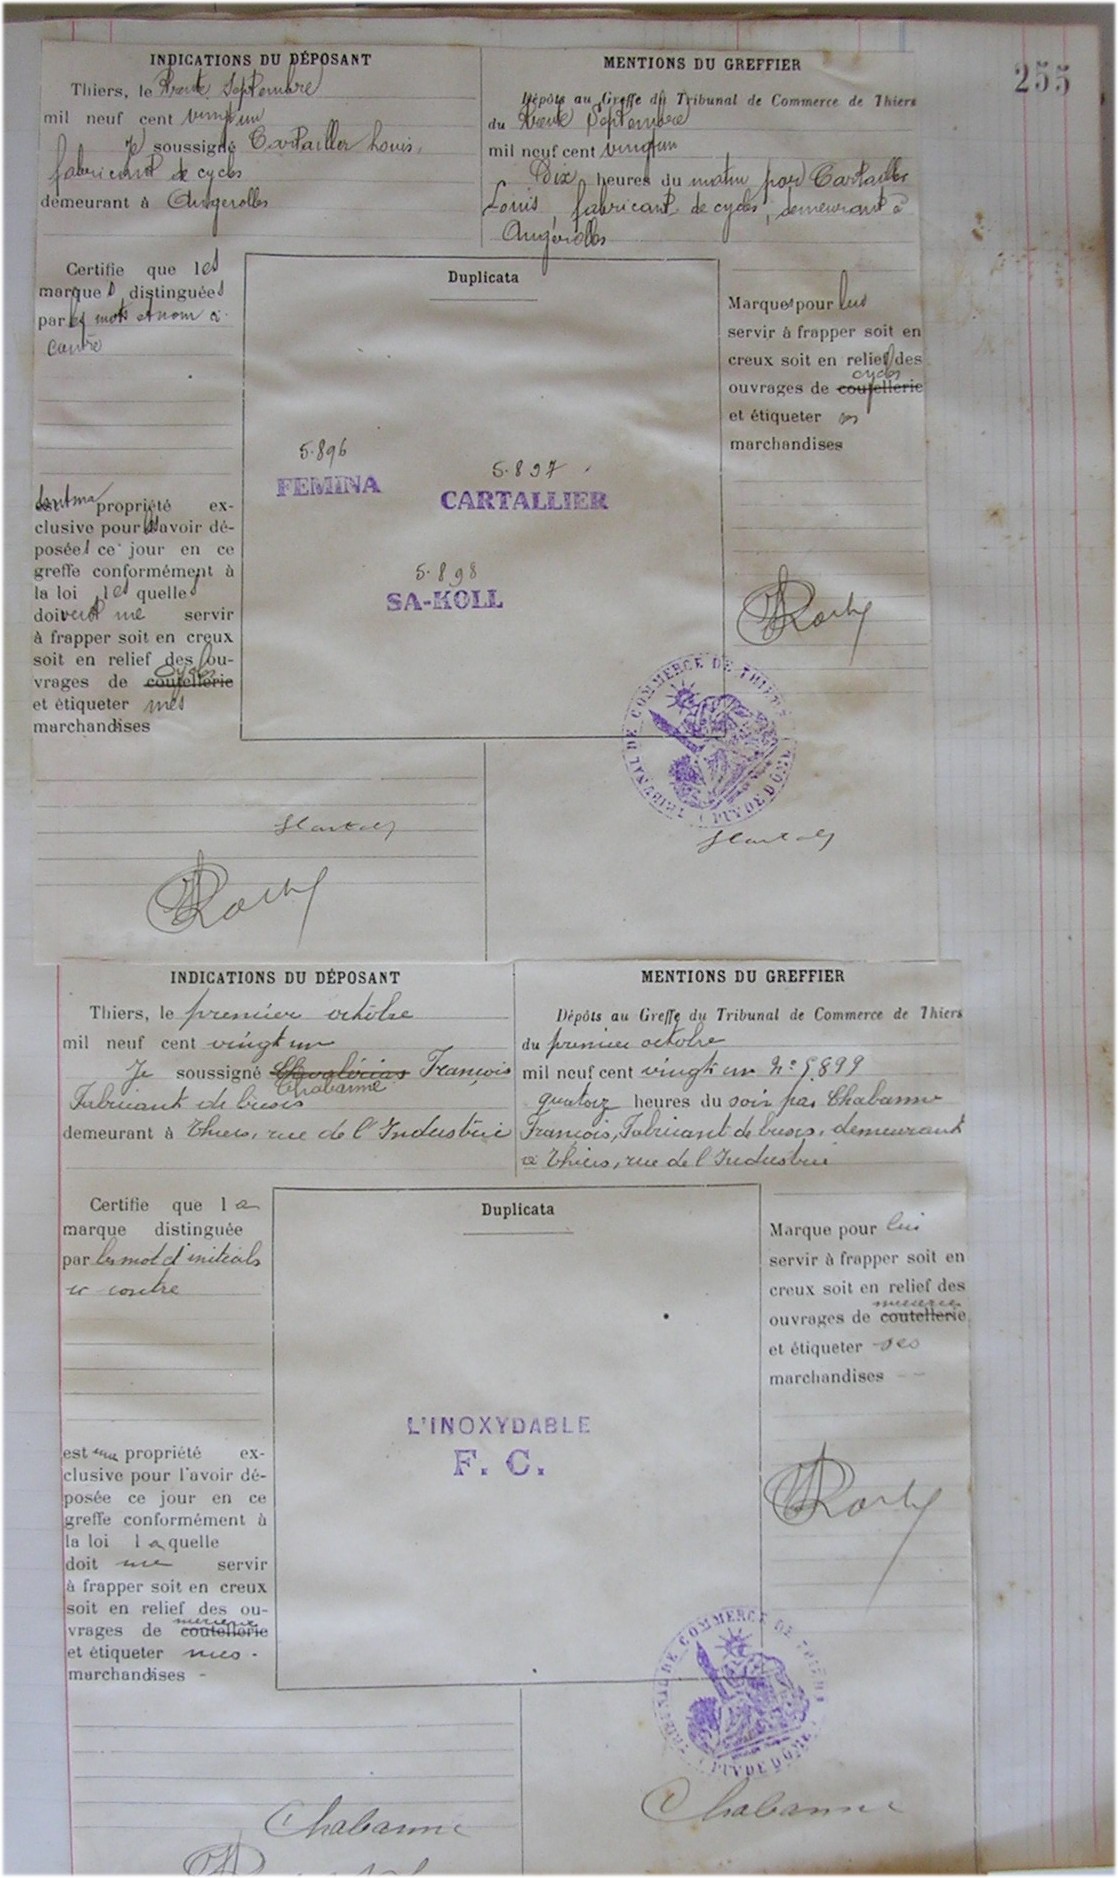 255
INDICATIONS DU DÉPOSANT
Thiers, le trente Septembre
mil neuf cent vingt un
Je soussigné Cartailler Louis,
fabricant de cycles
demeurant à Augerolles
MENTIONS DU GREFFIER
Dépôts au Greffe du Tribunal de Commerce de Thiers
du trente Septembre
mil neuf cent vingt un
Dix heures du matin par Cartailler
Louis, fabricant de cycles, demeurant à
Augerolles
Certifie que les
marques distinguées
par les mots et nom ci-
contre
Duplicata
5.896
FEMINA
5.897
CARTALLIER
5.898
SA-KOLL
Marques pour lui
servir à frapper soit en
creux soit en relief des
cycles
ouvrages de coutellerie
et étiqueter ses
marchandises
sont ma propriété ex-
clusive pour les avoir dé-
posées ce jour en ce
greffe conformément à
la loi les quelles
doivent me servir
à frapper soit en creux
soit en relief des ou-
cycles
vrages de coutellerie
et étiqueter mes
marchandises
TRIBUNAL DE COMMERCE DE THIERS
(PUY DE DÔME)
INDICATIONS DU DÉPOSANT
Thiers, le premier octobre
mil neuf cent vingt un
Je soussigné Chavalérias François
Chabanne
Fabricant de buscs
demeurant à Thiers, rue de l'Industrie
MENTIONS DU GREFFIER
Dépôts au Greffe du Tribunal de Commerce de Thiers
du premier octobre
mil neuf cent vingt un N° 5.899
quatorze heures du soir par Chabanne
François, Fabricant de buscs, demeurant
à Thiers, rue de l'Industrie
Certifie que la
marque distinguée
par les mot et initials
ci contre
Duplicata
L'INOXYDABLE
F. C.
Marque pour lui
servir à frapper soit en
creux soit en relief des
ouvrages de coutellerie
et étiqueter ses
marchandises
est ma propriété ex-
clusive pour l'avoir dé-
posée ce jour en ce
greffe conformément à
la loi la quelle
doit me servir
à frapper soit en creux
soit en relief des ou-
vrages de coutellerie
et étiqueter mes
marchandises
TRIBUNAL DE COMMERCE DE THIERS
(PUY DE DÔME)
Chabanne
Chabanne